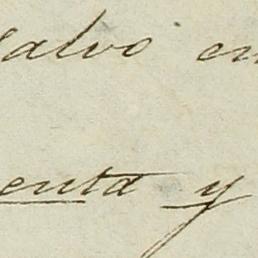 salvo en
enta y